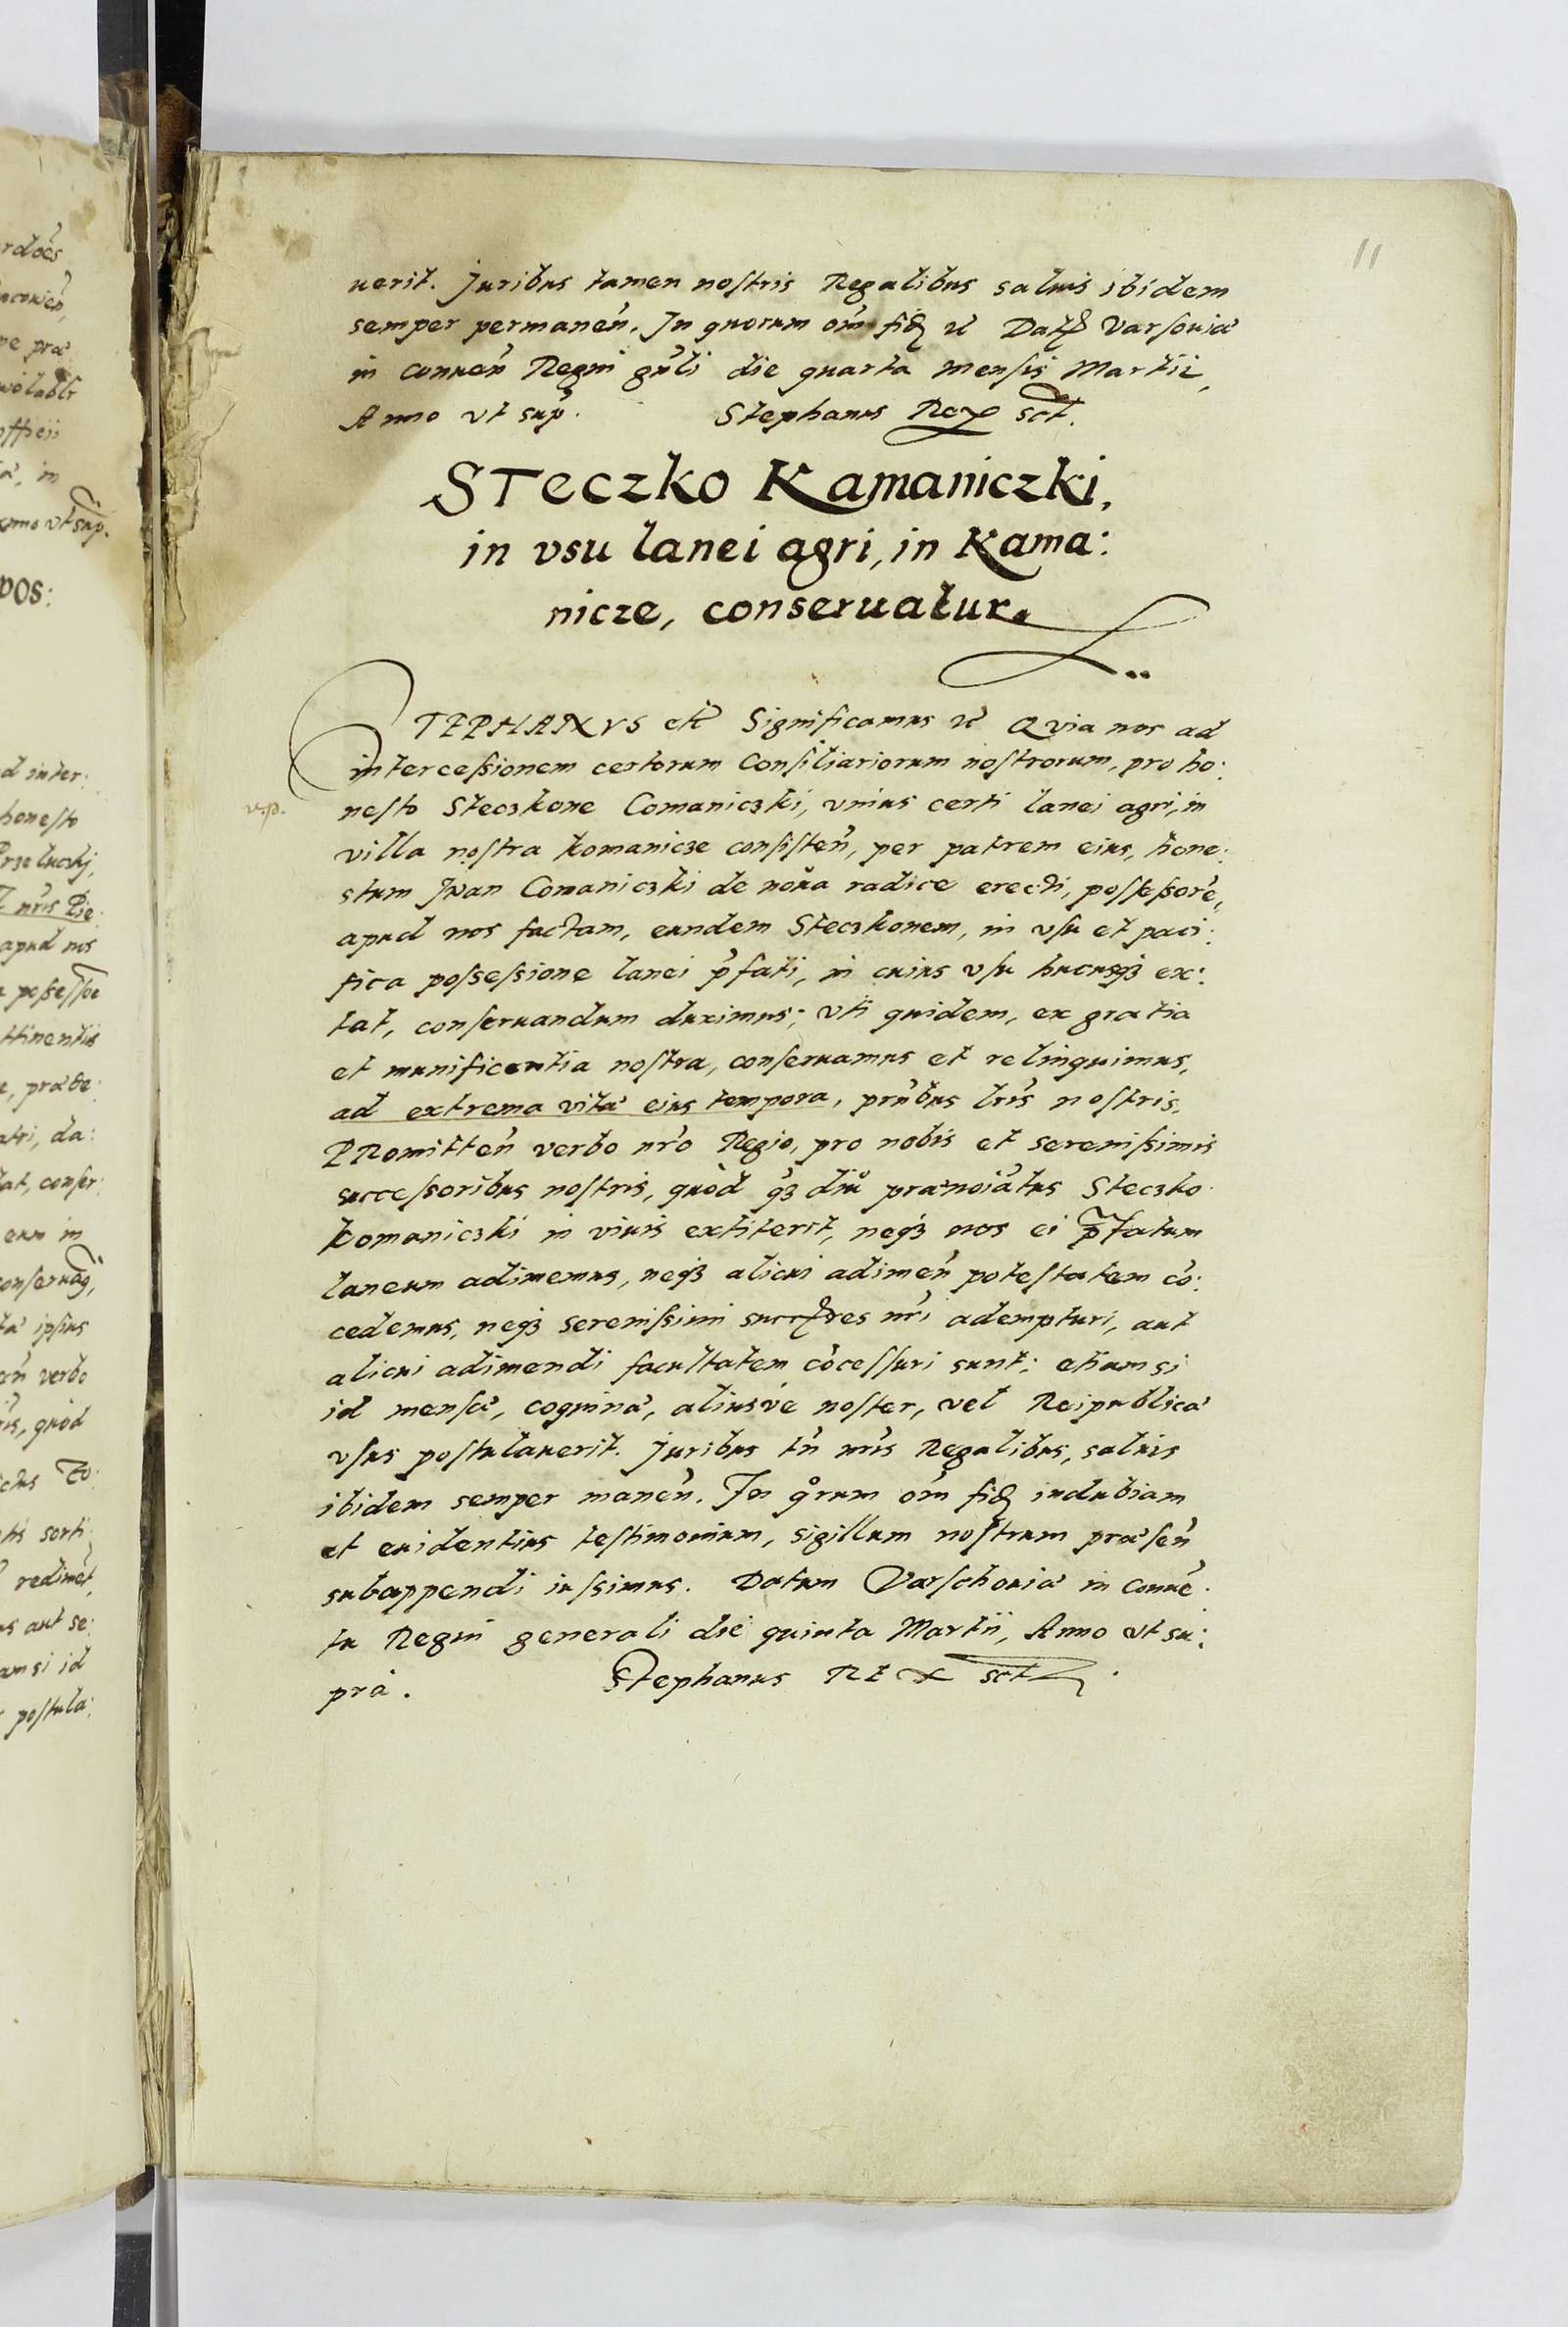 11
uerit. Juribus tamen nostris Regalibus saluis ibidem
semper permaneñ. In quorum om̃ fid etc Dat Varsouiæ
in conueñ Regni gñli die quarta mensis Martii,
Anno vt sup̃. Stephanus Rex sct.
STeczko Kamaniczki,
in vsu lanei agri, in Kama:
nicze, conseruatur.
STEPHANVS etc Significamus etc Quia nos ad
intercessionem certorum Consiliariorum nostrorum, pro ho:
nesto Steczkone Comaniczki, vnius certi lanei agri, in
villa nostra Komanicze consisteñ, per patrem eius, hone:
stum Jwan Comaniczki de noua radice erecti, possessorẽ,
apud nos factam, eundem Steczkonem, in vsu et paci:
fica possessione lanei p̃fati, in cuius vsu hucusqꝫ ex:
tat, conseruandum duximus; vti quidem, ex gratia
et munificentia nostra, conseruamus et relinquimus,
ad extrema vitæ eius tempora, pñtibus lr̃is nostris,
PRomitteñ verbo nr̃o Regio, pro nobis et serenissimis
successoribus nostris, quòd qꝫ diu prænoĩatus Steczko
Komaniczki in viuis extiterit, neqꝫ nos ei p̃fatum
laneum adimemus, neqꝫ alicui adimeñ potestatem cõ:
cedemus, neqꝫ serenissimi succres nr̃i adempturi, aut
alicui adimendi facultatem cõcessuri sunt; etiamsi
id mensæ, coquinæ, aliusvé noster, vel Reipublicæ
vsus postulauerit. Juribus tñ nr̃is Regalibus, saluis
ibidem semper maneñ. In qͦrum om̃ fid indubiam
et euidentius testimonium, sigillum nostrum præseñ
subappendi iussimus. Datum Varschouiæ in conuẽ:
tu Regni generali die quinta Martii, Anno vt su:
prà. Stephanus REX sct